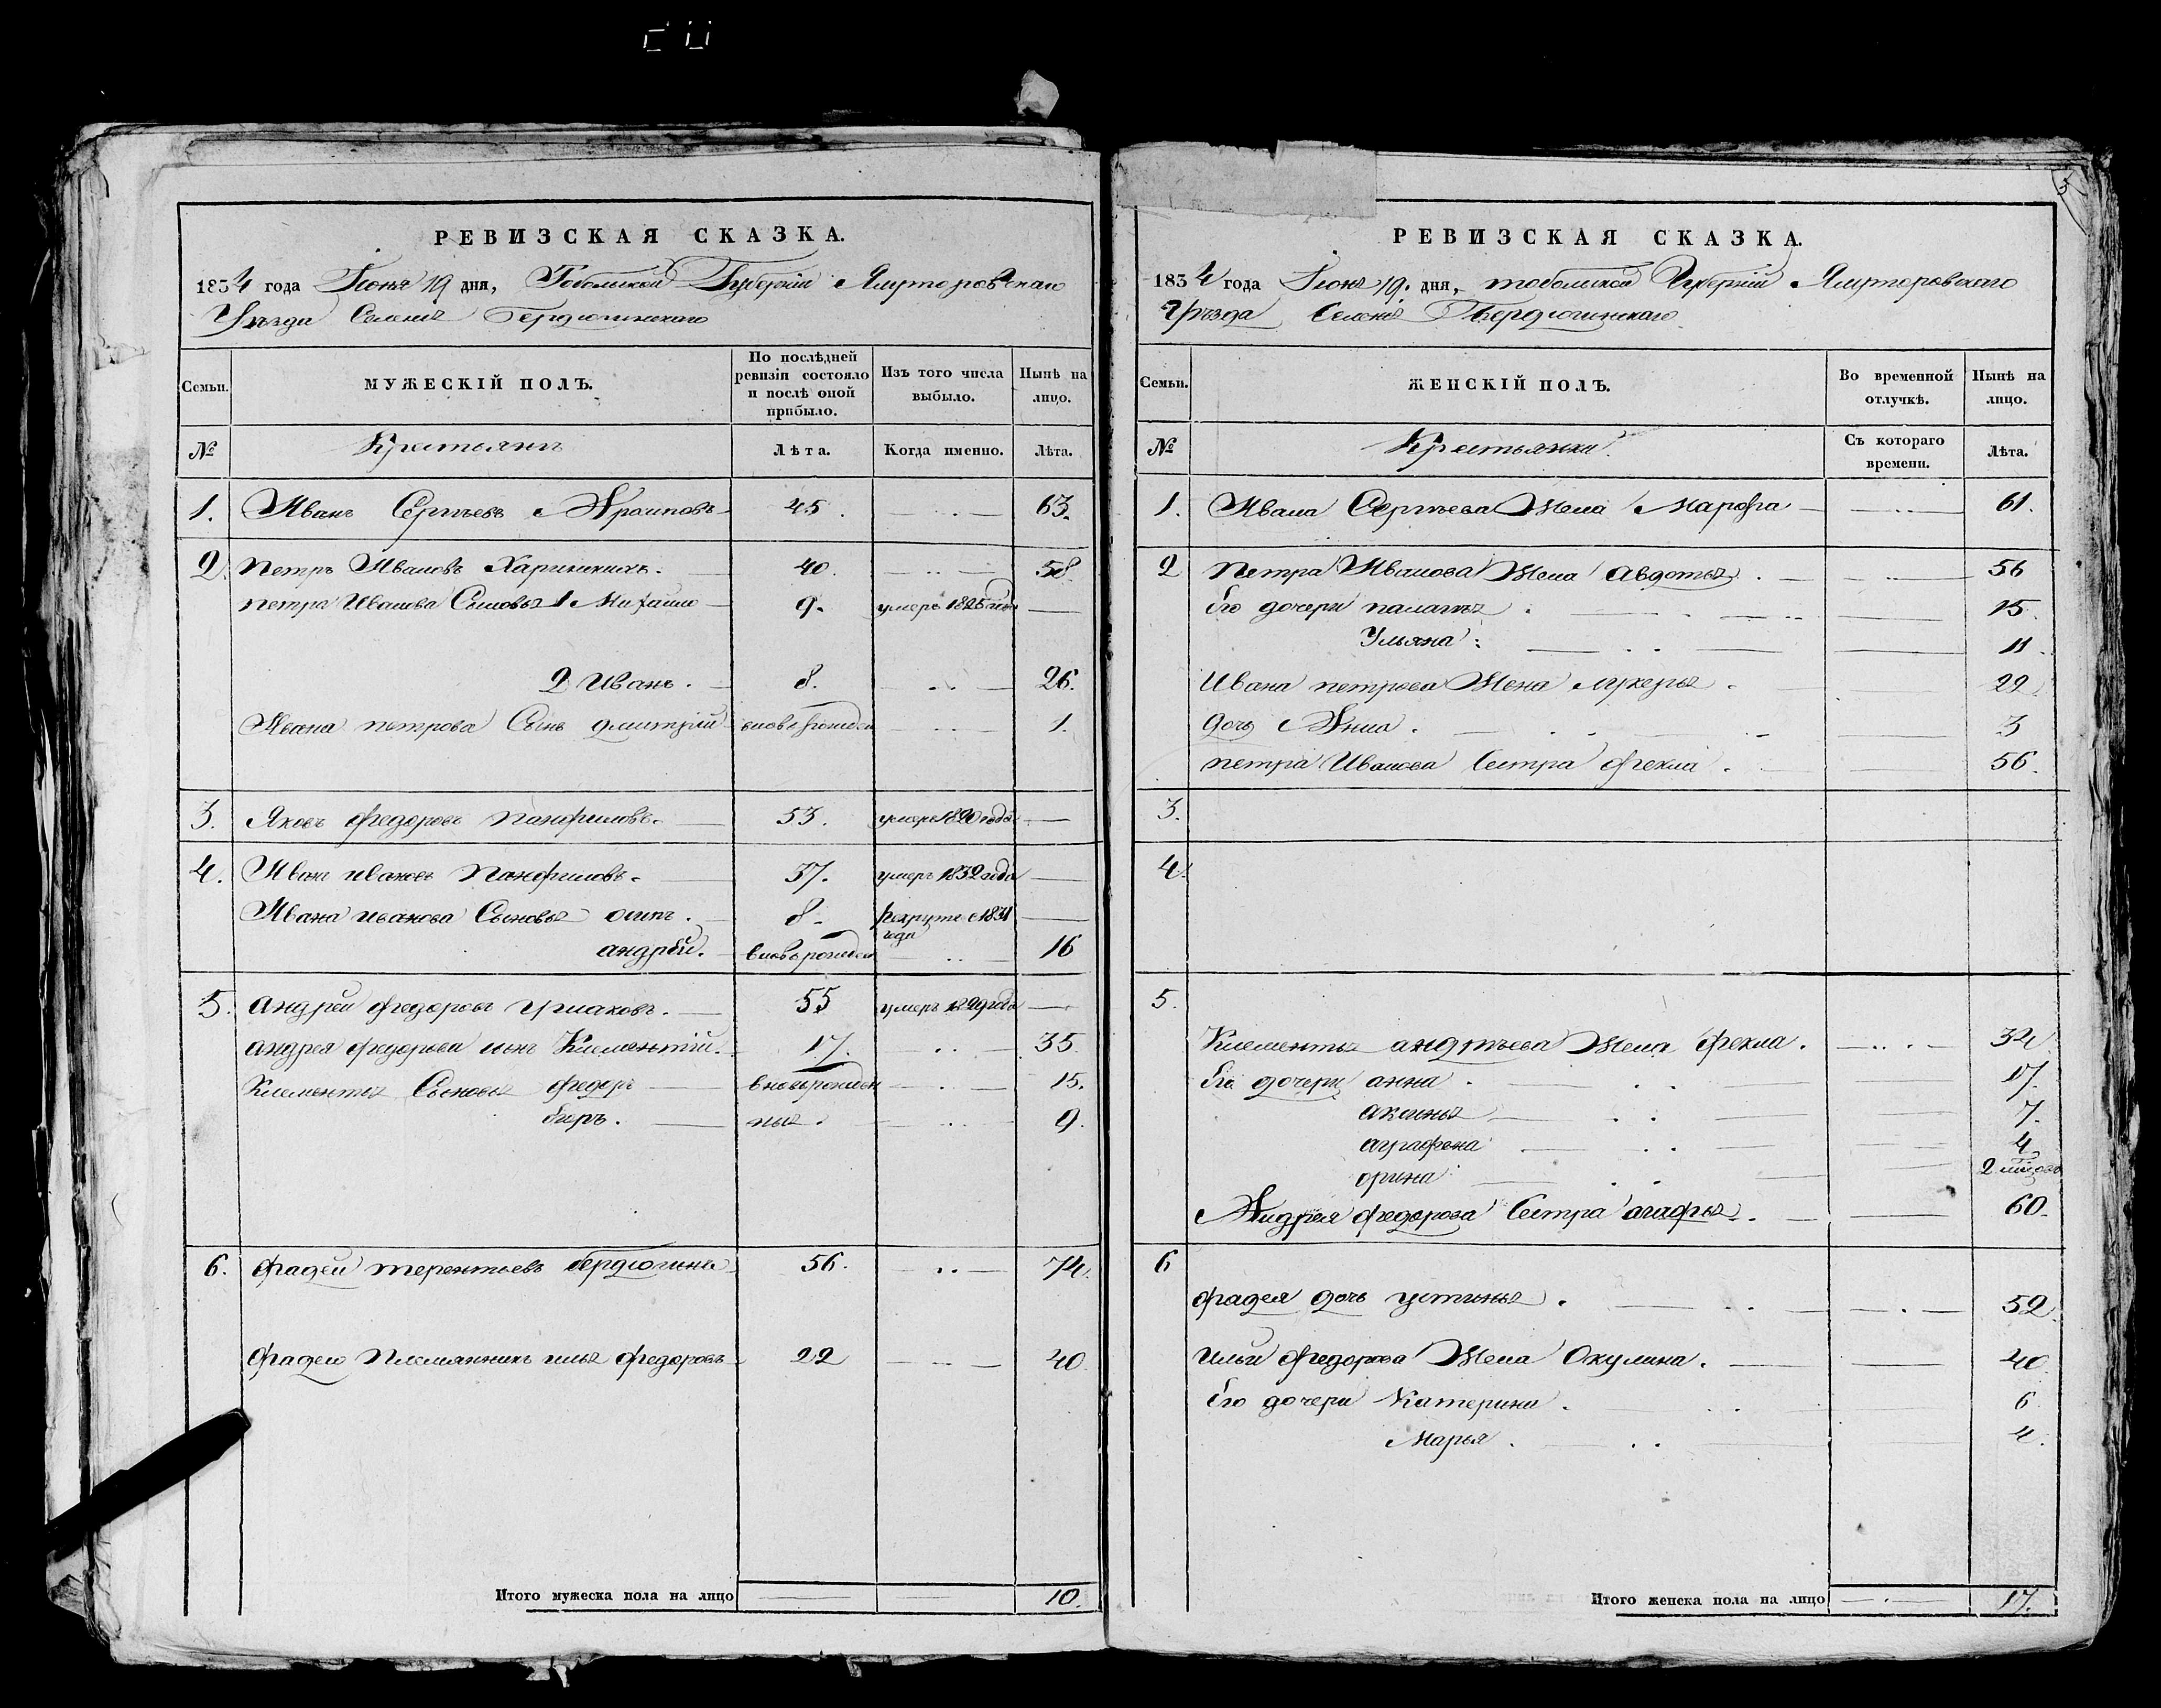 5
РЕВИЗСКАЯ СКАЗКА.
1834 года Іюня 19 дня, Тобольской Губерніи Ялуторовскаго
Уѣзда Селенія Бердюгинскаго
Семьи. МУЖЕСКІЙ ПОЛЪ. По послѣдней ревизіи состояло и послѣ оной прибыло. Изъ того числа выбыло. Нынѣ на лицо.
№ Крестьянъ Лѣта. Когда именно. Лѣта.
1. Иванъ Сергѣевъ 45. 63.
2. Петръ Ивановъ 40. 58.
Петра Иванова Сыновья 1 Михайло 9. умеръ 1825 года
2 Иванъ. 8. 26.
Ивана Петрова Сынъ дмитрій вновь рожден 1.
3. Яковъ Федоровъ Панфиловъ. 53. умеръ 1820 года
4. Иван ивановъ Панфиловъ. 37. умеръ 1832 года
Ивана иванова Сыновья осипъ. 8. рекруты с 1831 года
андрѣй. вновь рожден 16
5. андрей Федоровъ Ушаковъ. 55 умеръ 1829 года
андрея Федорова сынъ Клементій. 17. 35.
Клементья Сыновья Федоръ вновь рожден 15.
Егоръ. ныя. 9.
6. Фадей терентьевъ бердюгинъ 56. 74.
Фадею Племянникъ илья Федоровъ 22 40.
Итого мужеска пола на лицо 10.
РЕВИЗСКАЯ СКАЗКА.
1834 года Іюня 19. дня, тобольской Губерніи Ялуторовскаго
Уѣзда Селенія Бердюгинскаго
Семьи. ЖЕНСКІЙ ПОЛЪ. Во временной отлучкѣ. Нынѣ на лицо.
№ Крестьянки Съ котораго времени. Лѣта.
1. Ивана Сергѣева Жена Марфа 61.
2 Петра Иванова Жена Авдотья. 56
Его дочери палагѣя. 15.
Ульяна. 11.
Ивана петрова Жена лукерья. 29
дочь Анна. 3
петра Иванова Сестра Фекла. 56.
3.
4.
5.
Клементья андрѣева Жена Фекла. 34
Его дочери анна. 17.
аксинья 7.
аграфена 4
орина 2 мѣсяцовъ
Андрея Федорова Сестра агафья. 60.
6
Фадея дочь устинья. 52.
Ильи Федорова Жена Окулина. 40
Его дочери Катерина. 6
Марья. 4.
Итого женска пола на лицо 17.